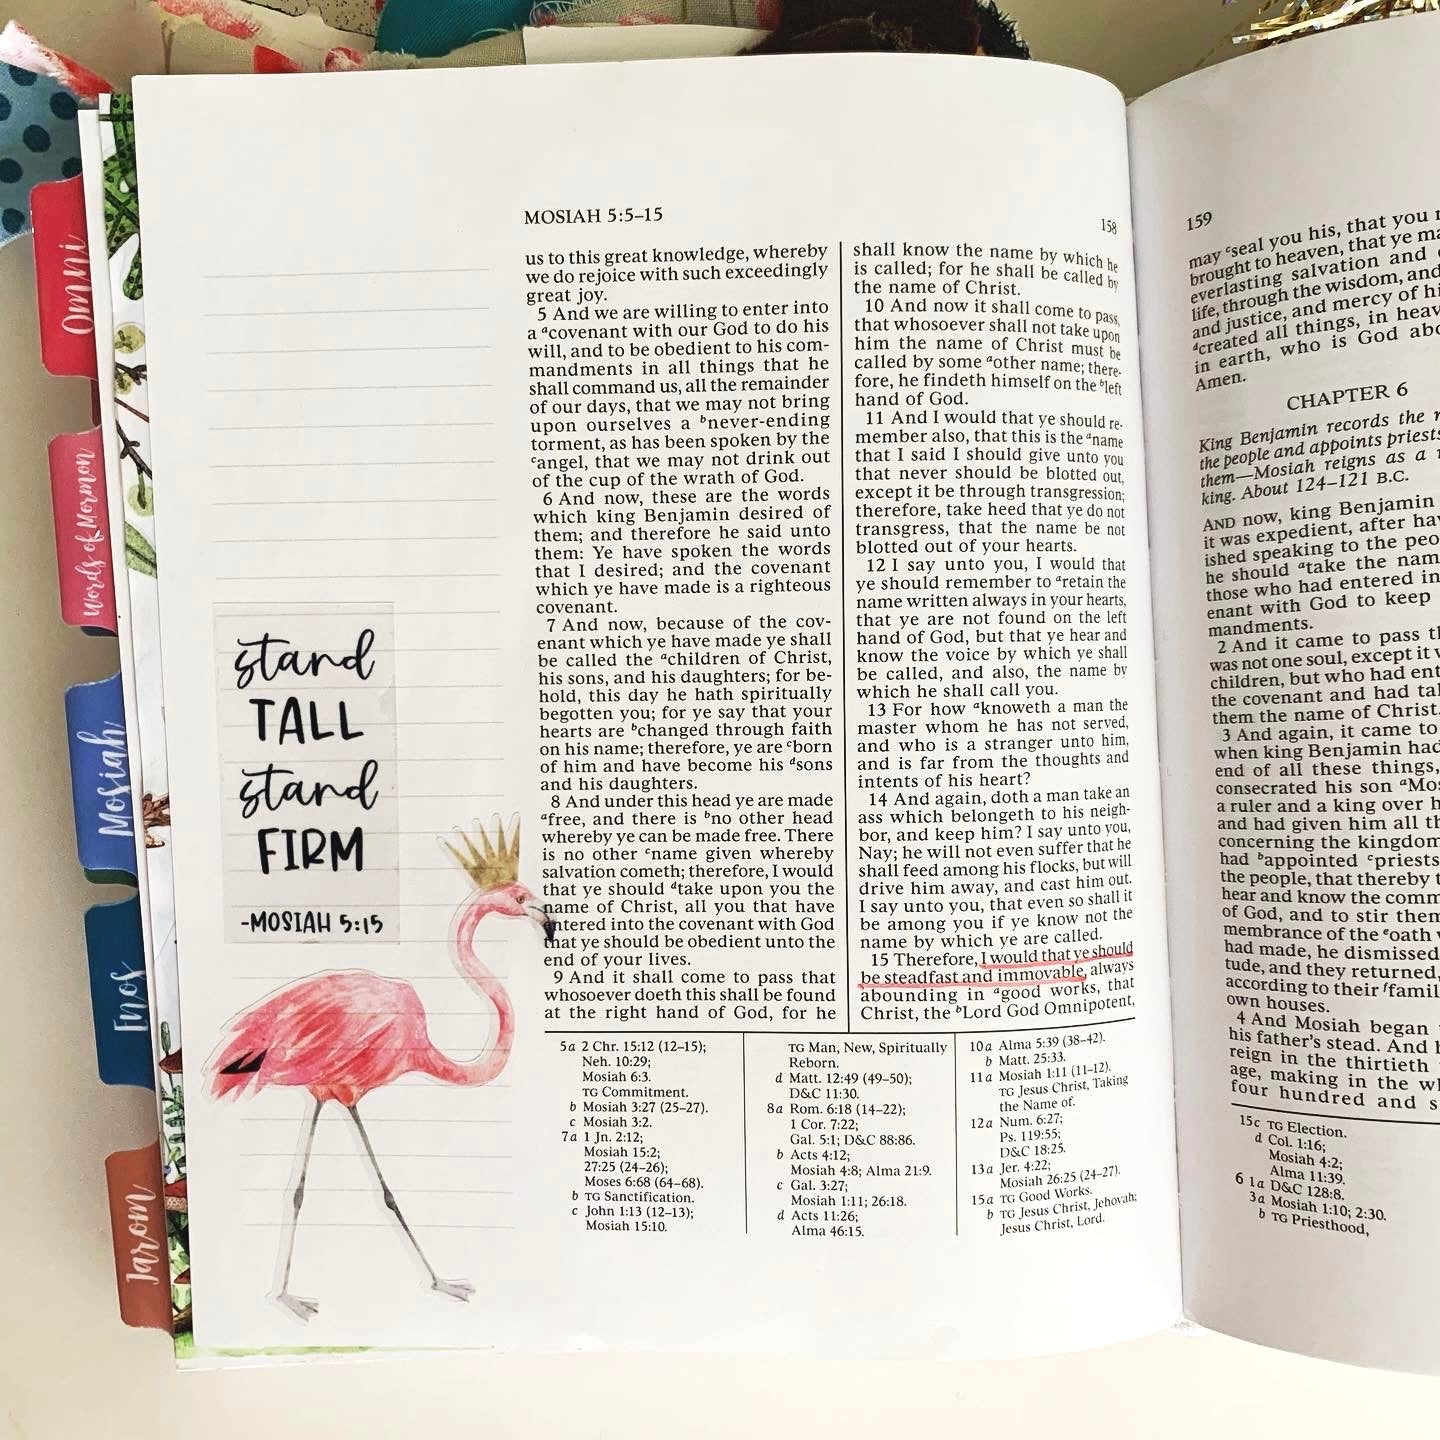 Omni
Words of Mormon
Mosiah
Enos
Jarom
stand
TALL
stand
FIRM
-MOSIAH 5:15
MOSIAH 5:5–15
158
us to this great knowledge, whereby
we do rejoice with such exceedingly
great joy.
5 And we are willing to enter into
a ᵃcovenant with our God to do his
will, and to be obedient to his com-
mandments in all things that he
shall command us, all the remainder
of our days, that we may not bring
upon ourselves a ᵇnever-ending
torment, as has been spoken by the
ᶜangel, that we may not drink out
of the cup of the wrath of God.
6 And now, these are the words
which king Benjamin desired of
them; and therefore he said unto
them: Ye have spoken the words
that I desired; and the covenant
which ye have made is a righteous
covenant.
7 And now, because of the cov-
enant which ye have made ye shall
be called the ᵃchildren of Christ,
his sons, and his daughters; for be-
hold, this day he hath spiritually
begotten you; for ye say that your
hearts are ᵇchanged through faith
on his name; therefore, ye are ᶜborn
of him and have become his ᵈsons
and his daughters.
8 And under this head ye are made
ᵃfree, and there is ᵇno other head
whereby ye can be made free. There
is no other ᶜname given whereby
salvation cometh; therefore, I would
that ye should ᵈtake upon you the
name of Christ, all you that have
entered into the covenant with God
that ye should be obedient unto the
end of your lives.
9 And it shall come to pass that
whosoever doeth this shall be found
at the right hand of God, for he
shall know the name by which he
is called; for he shall be called by
the name of Christ.
10 And now it shall come to pass,
that whosoever shall not take upon
him the name of Christ must be
called by some ᵃother name; there-
fore, he findeth himself on the ᵇleft
hand of God.
11 And I would that ye should re-
member also, that this is the ᵃname
that I said I should give unto you
that never should be blotted out,
except it be through transgression;
therefore, take heed that ye do not
transgress, that the name be not
blotted out of your hearts.
12 I say unto you, I would that
ye should remember to ᵃretain the
name written always in your hearts,
that ye are not found on the left
hand of God, but that ye hear and
know the voice by which ye shall
be called, and also, the name by
which he shall call you.
13 For how ᵃknoweth a man the
master whom he has not served,
and who is a stranger unto him,
and is far from the thoughts and
intents of his heart?
14 And again, doth a man take an
ass which belongeth to his neigh-
bor, and keep him? I say unto you,
Nay; he will not even suffer that he
shall feed among his flocks, but will
drive him away, and cast him out.
I say unto you, that even so shall it
be among you if ye know not the
name by which ye are called.
15 Therefore, I would that ye should
be steadfast and immovable, always
abounding in ᵃgood works, that
Christ, the ᵇLord God Omnipotent,
5a 2 Chr. 15:12 (12–15);
Neh. 10:29;
Mosiah 6:3.
TG Commitment.
b Mosiah 3:27 (25–27).
c Mosiah 3:2.
7a 1 Jn. 2:12;
Mosiah 15:2;
27:25 (24–26);
Moses 6:68 (64–68).
b TG Sanctification.
c John 1:13 (12–13);
Mosiah 15:10.
TG Man, New, Spiritually
Reborn.
d Matt. 12:49 (49–50);
D&C 11:30.
8a Rom. 6:18 (14–22);
1 Cor. 7:22;
Gal. 5:1; D&C 88:86.
b Acts 4:12;
Mosiah 4:8; Alma 21:9.
c Gal. 3:27;
Mosiah 1:11; 26:18.
d Acts 11:26;
Alma 46:15.
10a Alma 5:39 (38–42).
b Matt. 25:33.
11a Mosiah 1:11 (11–12).
TG Jesus Christ, Taking
the Name of.
12a Num. 6:27;
Ps. 119:55;
D&C 18:25.
13a Jer. 4:22;
Mosiah 26:25 (24–27).
15a TG Good Works.
b TG Jesus Christ, Jehovah;
Jesus Christ, Lord.
159
may ᶜseal you his, that you
brought to heaven, that ye
everlasting salvation and
life, through the wisdom, and
and justice, and mercy of
ᵈcreated all things, in
in earth, who is God
Amen.
CHAPTER 6
King Benjamin records the
the people and appoints priests
them—Mosiah reigns as a
king. About 124–121 B.C.
AND now, king Benjamin
it was expedient, after
ished speaking to the
he should ᵃtake the
those who had entered
enant with God to keep
mandments.
2 And it came to pass
was not one soul, except it
children, but who had
the covenant and had
them the name of Christ.
3 And again, it came to
when king Benjamin had
end of all these things,
consecrated his son
a ruler and a king over
and had given him all
concerning the kingdom
had ᵇappointed ᶜpriests
the people, that thereby
hear and know the
of God, and to stir them
membrance of the ᵉoath
had made, he dismissed
tude, and they returned,
according to their
own houses.
4 And Mosiah began
his father's stead. And
reign in the thirtieth
age, making in the
four hundred and
15c TG Election.
d Col. 1:16;
Mosiah 4:2;
Alma 11:39.
6 1a D&C 128:8.
3a Mosiah 1:10; 2:30.
b TG Priesthood,